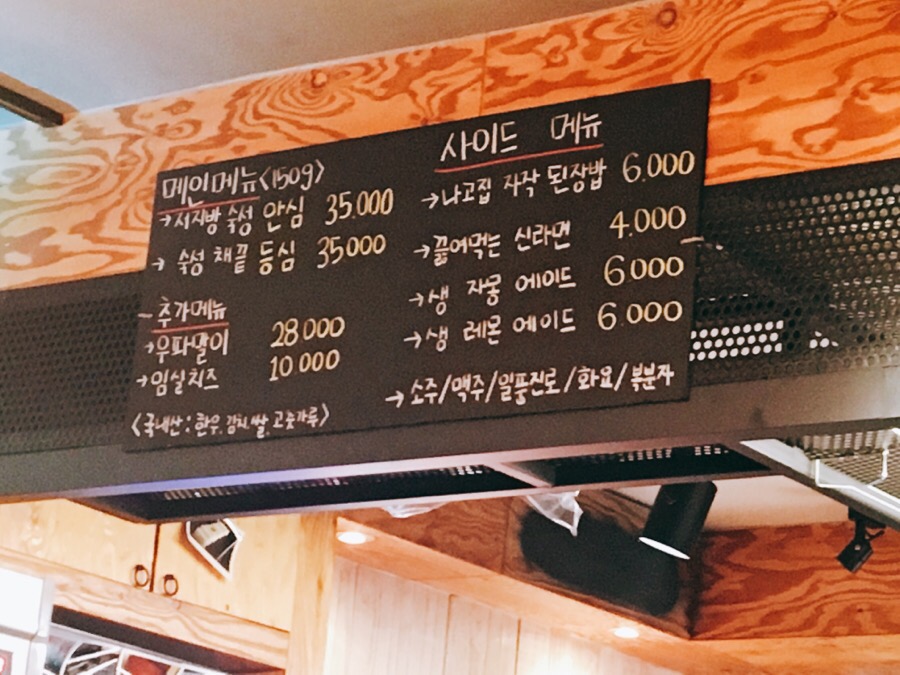 메인메뉴<150g>
→저지방 숙성 안심 35.000
→ 숙성 채끝 등심 35000
추가메뉴
→우파말이 28000
→임실치즈 10000
<국내산: 한우, 김치, 쌀, 고춧가루>
사이드 메뉴
→나고집 자작 된장밥 6.000
→끓여먹는 신라면 4.000
→생 자몽 에이드 6000
→생 레몬 에이드 6.000
→소주/맥주/일품진로/화요/복분자